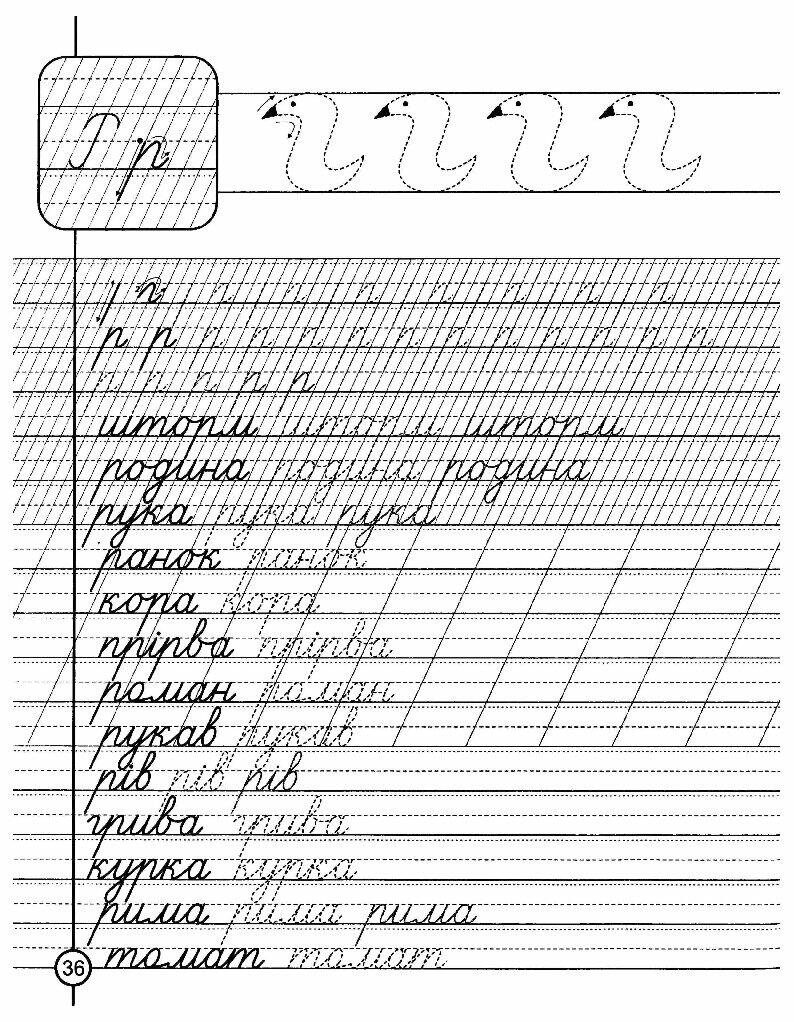 Р р
р р р р р р р р
р р р р р р р р р р р р р
р р р р р
шторм шторм шторм
родина родина родина
рука рука рука
ранок ранок
кора кора
прірва прірва
роман роман
рукав рукав
рів рів рів
грива грива
курка курка
рима рима рима
томат томат
36